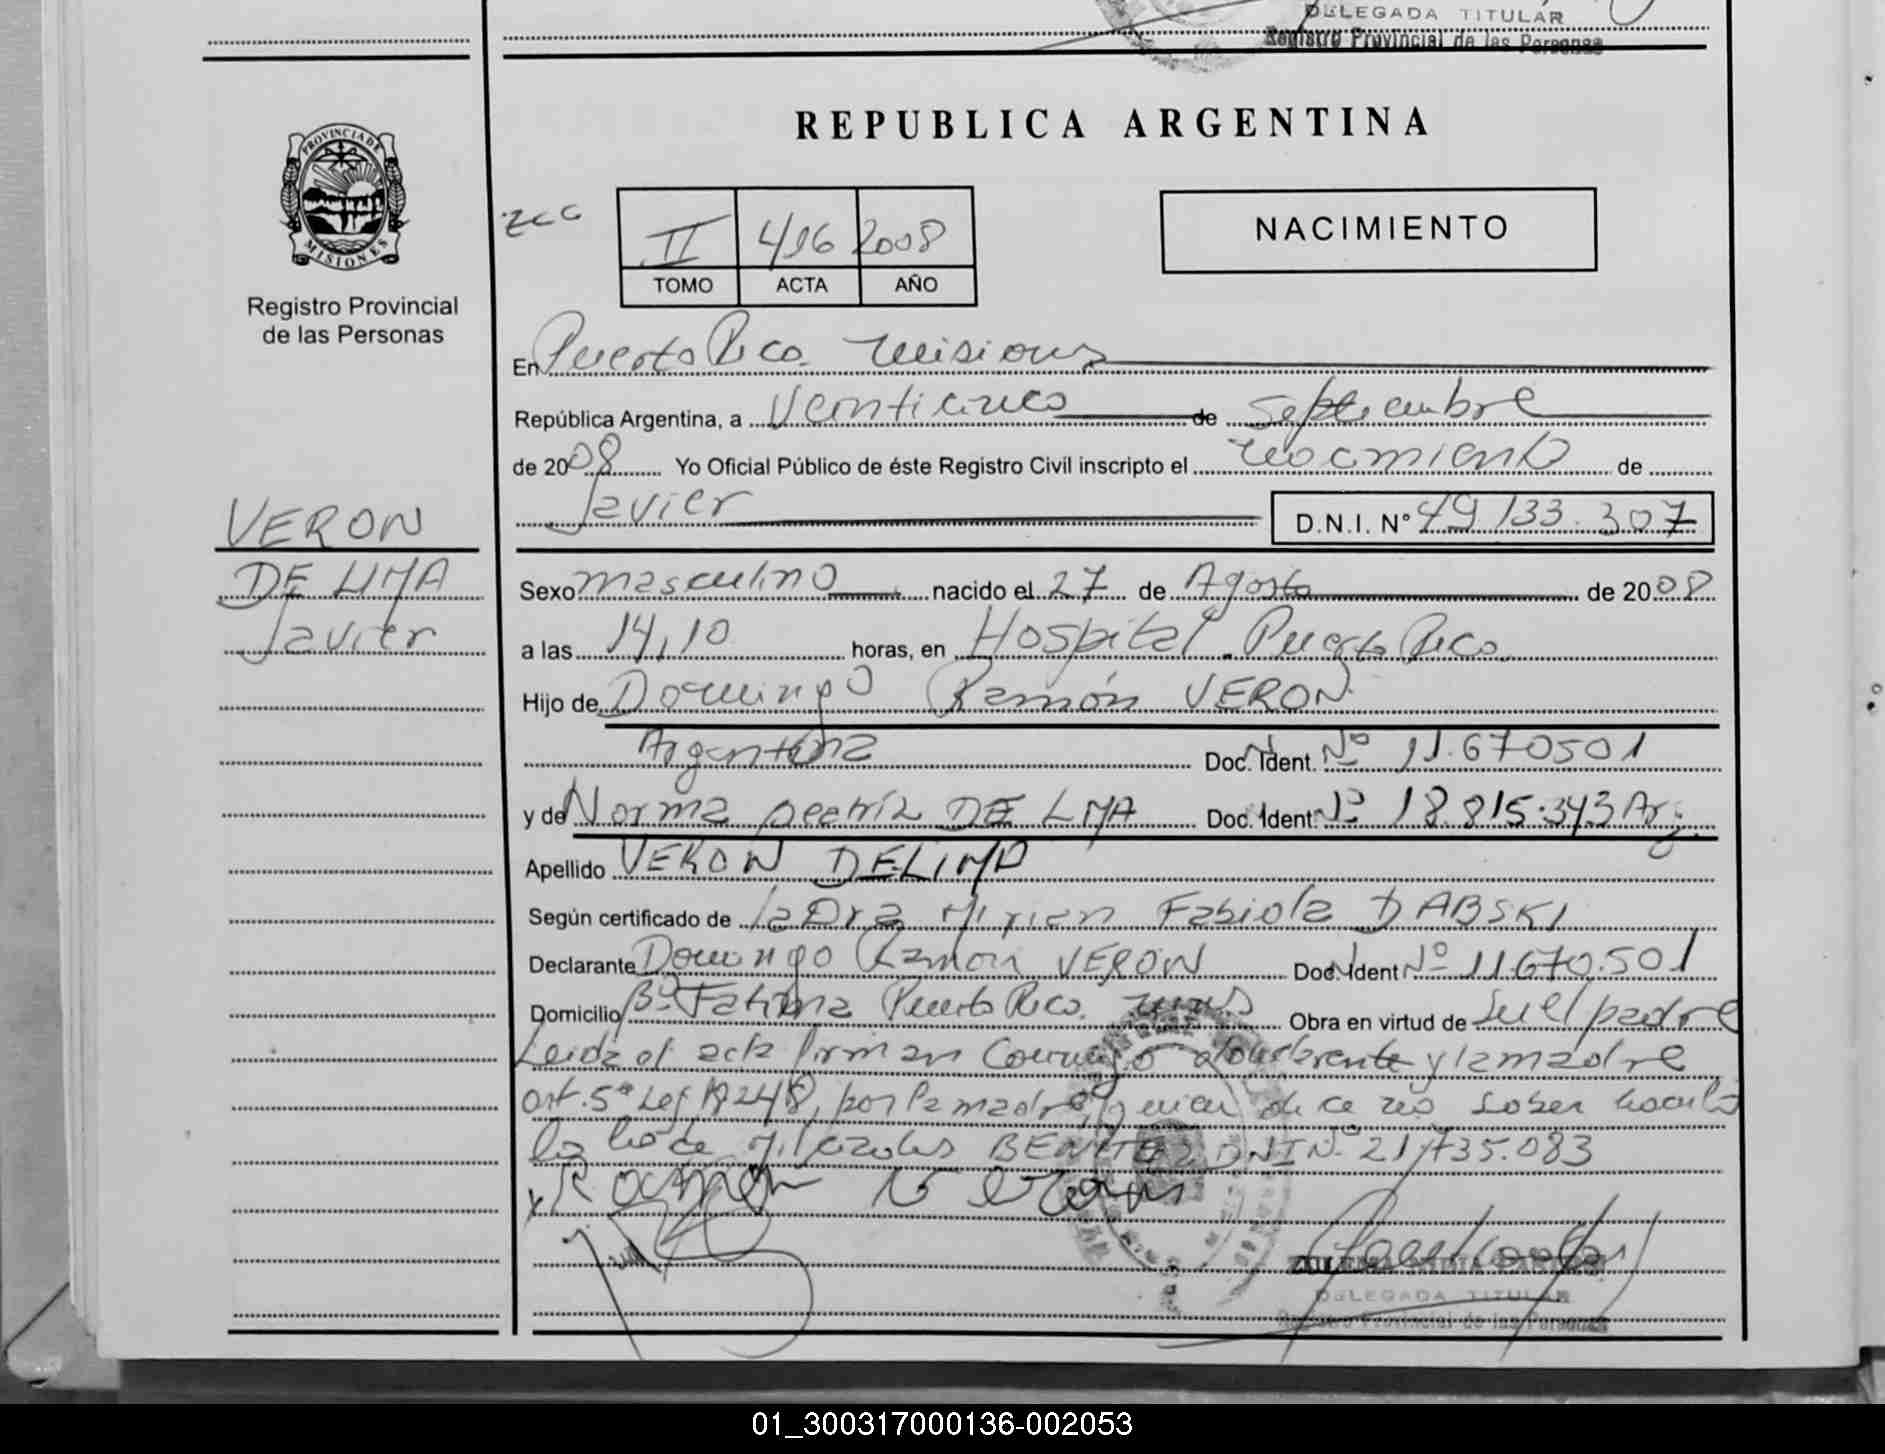 DELEGADA TITULAR
Registro Provincial de las Personas
PROVINCIA DE
MISIONES
Registro Provincial
de las Personas
REPUBLICA ARGENTINA
II 416 2008
TOMO ACTA AÑO
NACIMIENTO
En Puerto Rico Misiones
República Argentina, a Veinticinco de Septiembre
de 2008 Yo Oficial Público de éste Registro Civil inscripto el nacimiento de
Javier D.N.I. N° 49133.307
VERON
DE LIMA
Javier
Sexo masculino nacido el 27 de Agosto de 2008
a las 14,10 horas, en Hospital Puerto Rico
Hijo de Domingo Ramón VERON
Argentina Doc. Ident. Nº 11.670501
y de Norma Beatriz DE LIMA Doc. Ident. Nº 18.815.343 Arg.
Apellido VERON DE LIMA
Según certificado de la Dra Mirian Fabiola DABSKI
Declarante Domingo Ramon VERON Doc. Ident Nº 11.670.501
Domicilio Bº Fatima Puerto Rico. Mnes Obra en virtud de Su el padre
Leida el acta firman Conmigo el declarante y la madre
art. 5º Ley 18248, por la madre quien dice no saber hacerlo
lo hace Milcaroles BENITEZ DNI Nº 21.735.083
DELEGADA TITULAR
Registro Provincial de las Personas
01_300317000136-002053